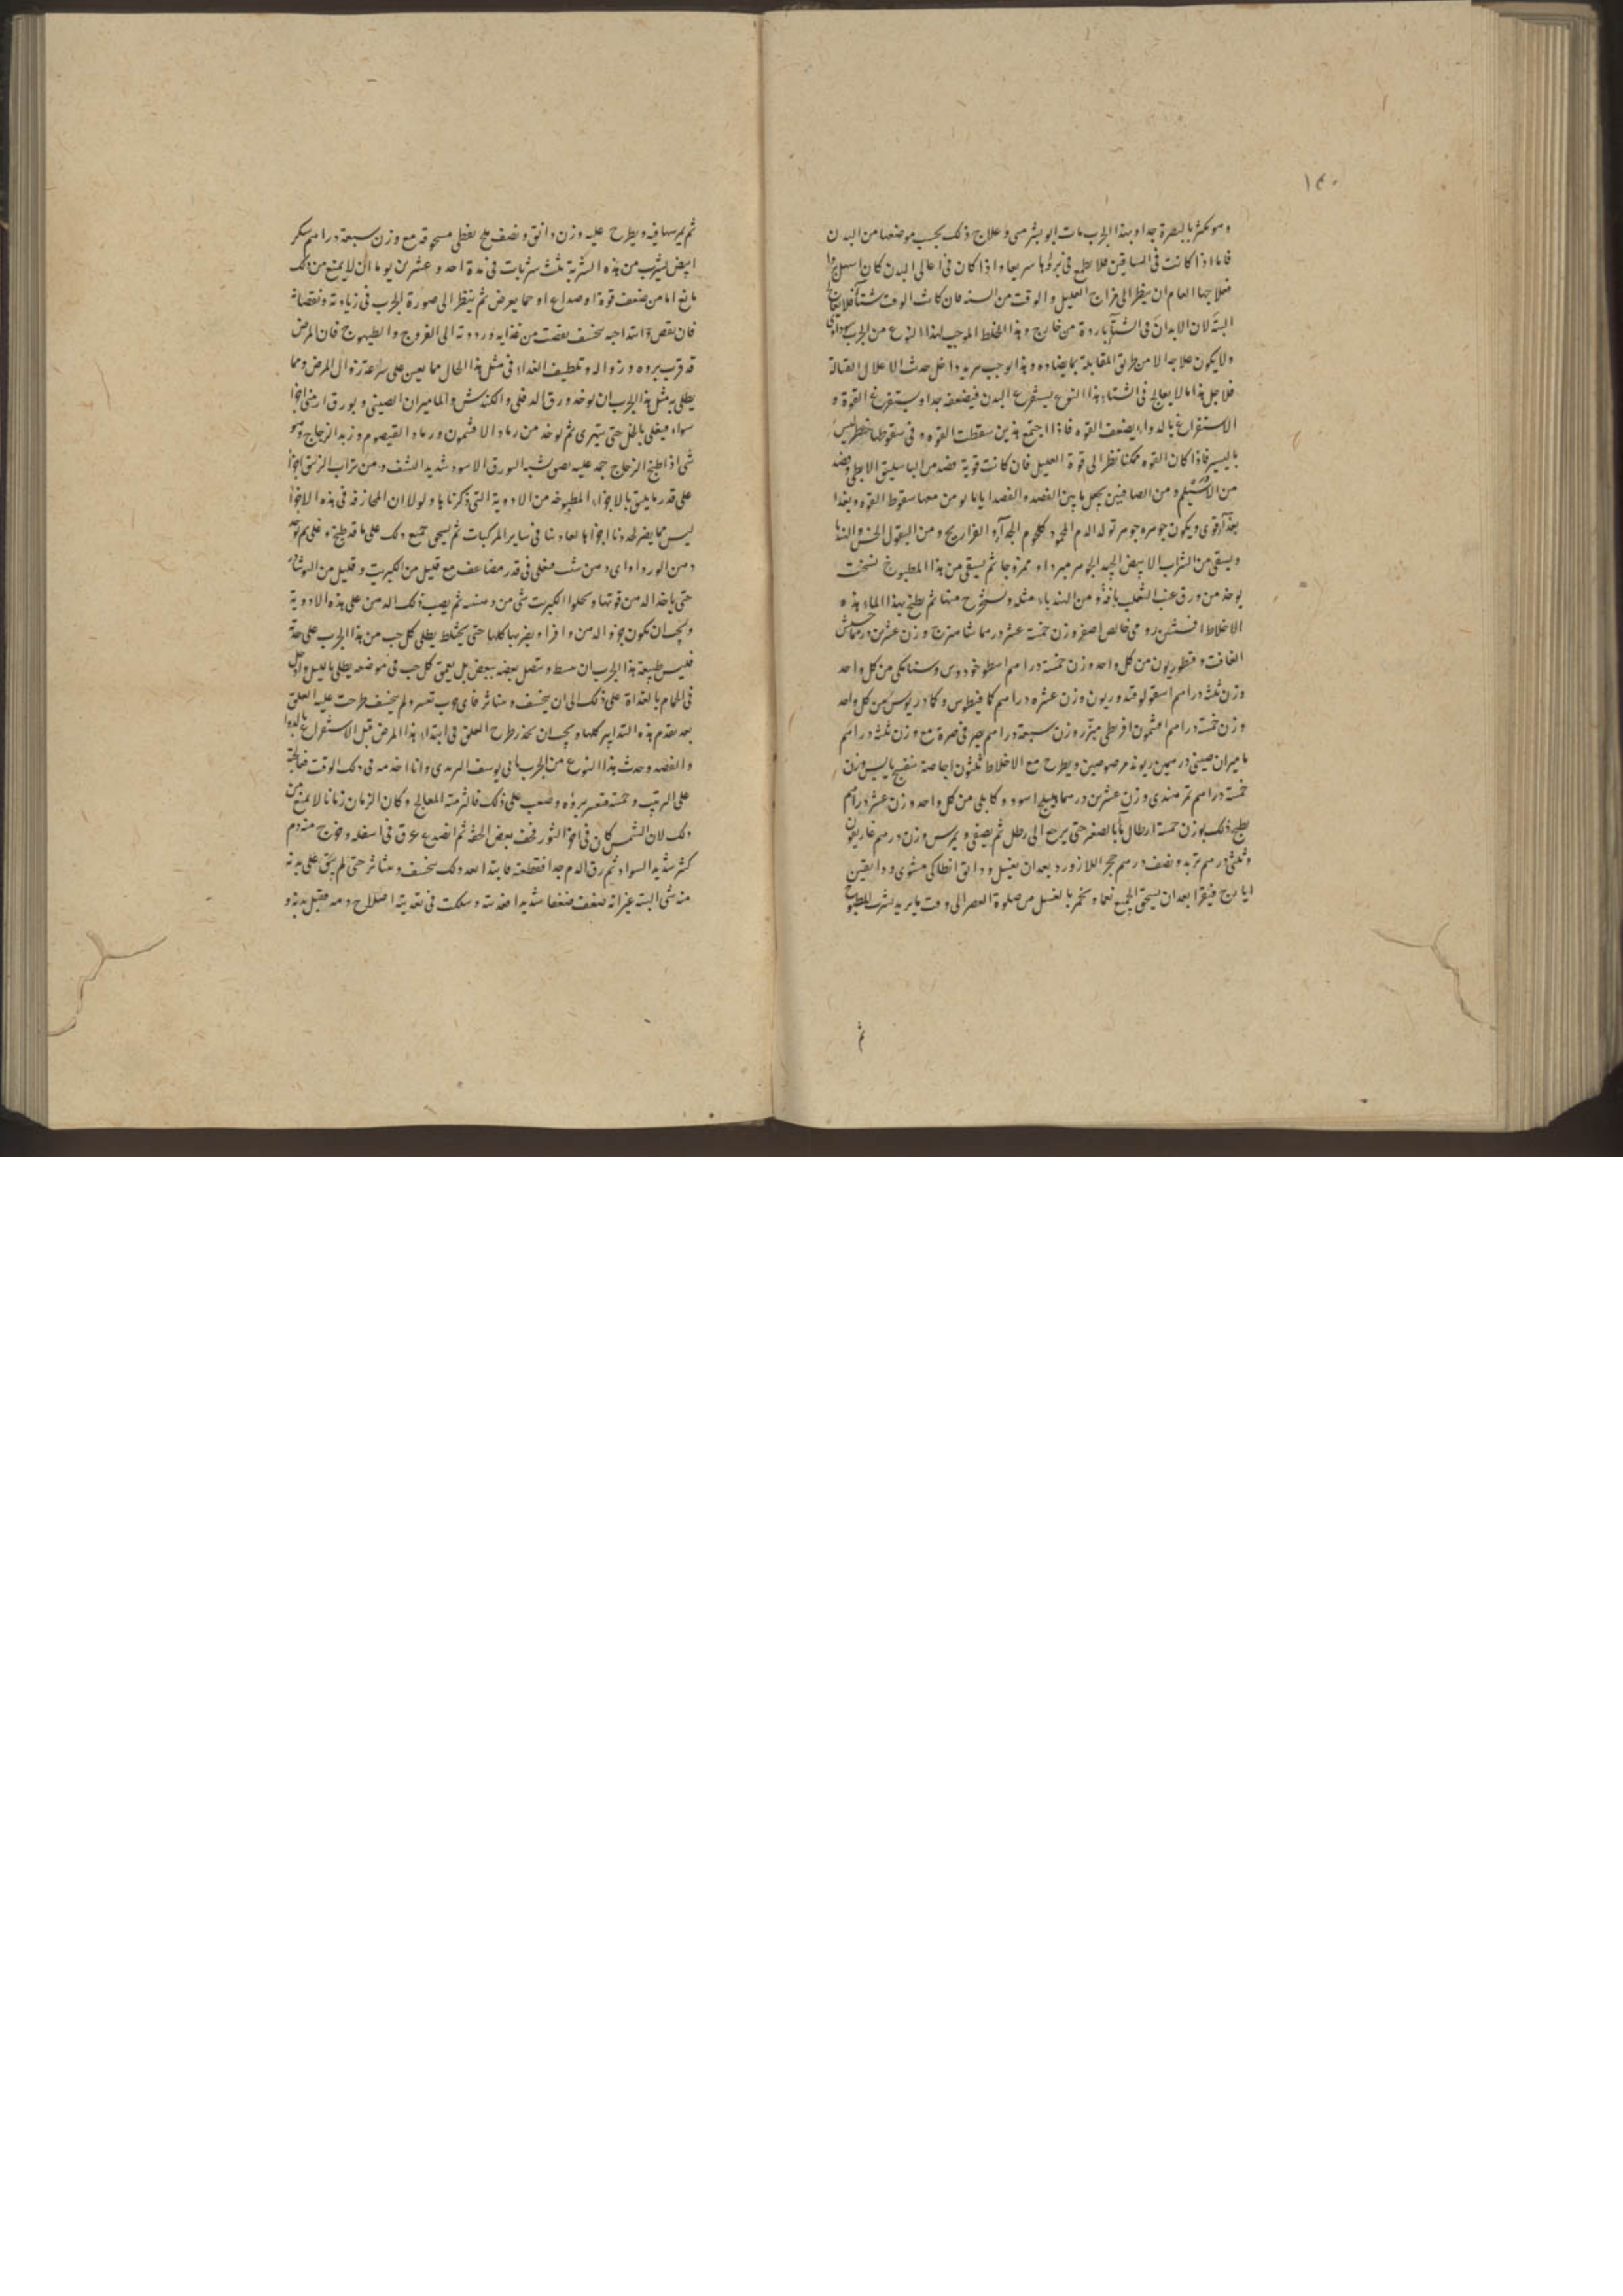 ١٤٠
وهو يكثر بالبصرة جدا وبهذا الجرب مات ابو بشر متى وعلاج ذلك بحسب موضعها من البدن
فاما اذا كانت فى الساقين فلا يطمع فى برؤها سريعا واذا كان فى اعالى البدن كان اسهل
فعلاجها العام ان ينظر الى مزاج العليل والوقت من السنه فان كان الوقت شتآ فلا يعالج
البتة لان الابدان فى الشتآ باردة من خارج وهذا الخلط الموجب لهذا النوع من الجرب سوداوى
ولا يكون علاجه الا من طريق المقابلة بما يضاده وهذا يوجب تبريد داخل حدث الاعلال القتالة
فلاجل هذا ما لا يعالج فى الشتاء هذا النوع يستفرغ البدن فيضعفه جدا ويستفرغ القوة و
الاستفراغ بالدواء يضعف القوه فاذا اجتمع هذين سقطت القوه وفى سقوطها خطر ليس
باليسير فاذا كان القوه ممكنا نظر الى قوة العليل فان كانت قوية فصد من الباسليق الابطى وفصد
من الاسيلم ومن الصافنين يجعل ما بين الفصد والفصد اياما يومن معها سقوط القوه ويغذا
بغذآ قوى ويكون جوهره جوهر تولد الدم المحمود كلحوم الجدآء والفراريج ومن البقول الخس والهندبا
ويسقى من الشراب الابيض الجيد الجوهر مبردا وممزوجا ثم يسقى من هذا المطبوخ نسخت
يوخذ من ورق عنب الثعلب باقة ومن الهندباء مثله ويستخرج منها ثم يطبخ بهذا الماء هذه
الاخلاط افسنتين رومى خالص اصفر وزن خمسة عشر درهما شاهترج وزن عشرين درهما حشيش
الغافت وقنطوريون من كل واحد وزن خمسة دراهم اسطوخودوس وسنا مكى من كل واحد
وزن ثلثة دراهم اسقولوقندوريون وزن عشره دراهم كمافيطوس وكمادريوس من كل واحد
وزن خمسة دراهم افتيمون اقريطى مبزر وزن سبعة دراهم يصر فى صرة مع وزن ثلثة دراهم
ماميران صينى درهمين ريوند مرضوضين ويطرح مع الاخلاط ثلثون اجاصة منقع يابس وزن
خمسة دراهم تمر هندى وزن عشرين درهما هليلج اسود وكابلى من كل واحد وزن عشرة دراهم
يطبخ ذلك بوزن خمسة ارطال مآء بالصغير حتى يرجع الى رطل ثم يصفى ويمرس وزن درهم غاريقون
وثلثى درهم تربد ونصف درهم حجر اللازورد بعد ان يغسل ودانق انطاكى مشوى ودانقين
ايارج فيقرا بعد ان يسحق الجميع نعما ويخمر بالعسل من صلوة العصر الى وقت ما يريد شرب المطبوخ
ثم
ثم يمرسها فيه ويطرح عليه وزن دانق ونصف ملح نفطى مسحوقة مع وزن سبعة دراهم سكر
ابيض ليشرب من هذه الشربة ثلث شربات فى مدة احد وعشرين يوما ان لا يمنع من ذلك
مانع اما من ضعف قوة او صداع او حما يعرض ثم ينظر الى صورة الجرب فى زيادته ونقصانه
فان نقص وابتدا جبه يتخسف نقصت من غذايه ورددته الى الفروج والطيهوج فان المرض
قد قرب بروه وزواله وتلطيف الغذاء فى مثل هذا الحال مما يعين على سرعة زوال المرض ومما
يطلى به مثل هذا الجرب ان يوخذ ورق الدفلى والكندش والماميران الصينى وبورق ارمنى اجزا
سواء فيغلى بالخل حتى يتهرى ثم يوخذ من رماد الافتيمون ورماد القيصوم وزبد الزجاج وهو
شى اذا طبخ الزجاج جمد عليه بصى شبه البورق الاسود شديد النشف ومن تراب الزيبق اجزا
على قدر ما يليق بالاجزاء المطبوخة من الادوية التى ذكرناها ولولا ان المجازفة فى هذه الاجزا
ليس مما يضر لحددنا اجزاها كعادتنا فى ساير المركبات ثم يسحق جميع ذلك على ما قد طبخ وغلى ثم يوخذ
دهن الورد او اى دهن شئت فيغلى فى قدر مضاعف مع قليل من الكبريت وقليل من النوشادر
حتى ياخذ الدهن قوتها وينحلوا الكبريت شى من دهنه ثم يصب ذلك الدهن على هذه الادوية
ويجب ان يكون جزو الدهن وافرا ويضربها كلها حتى يختلط يطلى كل جب من هذا الجرب على حدة
فليس طبيعة هذا الجرب ان ينبسط ويتصل بعضه ببعض بل يعمق كل جب فى موضعه يطلى بالليل وادخل
فى الحمام بالغداة على ذلك الى ان يتخسف ويتناثر فاى جرب تعسر ولم يتخسف طرحت عليه العلق
بعد تقدم هذه التدابير كلها ويجب ان يحذر طرح العلق فى ابتداء هذا المرض قبل الاستفراغ بالدوا
والفصد وحدث هذا النوع من الجرب بابى يوسف البريدى وانا اخدمه فى ذلك الوقت فعالجته
على الترتيب وخمسة فتعسر بروه وصعب على ذلك فالزمته المعالج وكان الزمان زمانا لا يمنع من
ذلك لان الشمس كان فى اخر الثور فجف بعض الجفة ثم انصدع عرق فى اسفله وخرج منه دم
كثير شديد السواد ثم رق الدم جدا فقطعته فابتدا بعد ذلك يتخسف ويتناثر حتى لم يبق على بدنه
منه شى البته غير انه ضعف ضعفا شديدا فغذيته وسلكت فى تغذيته اصلاح دمه فقبل بدنه و